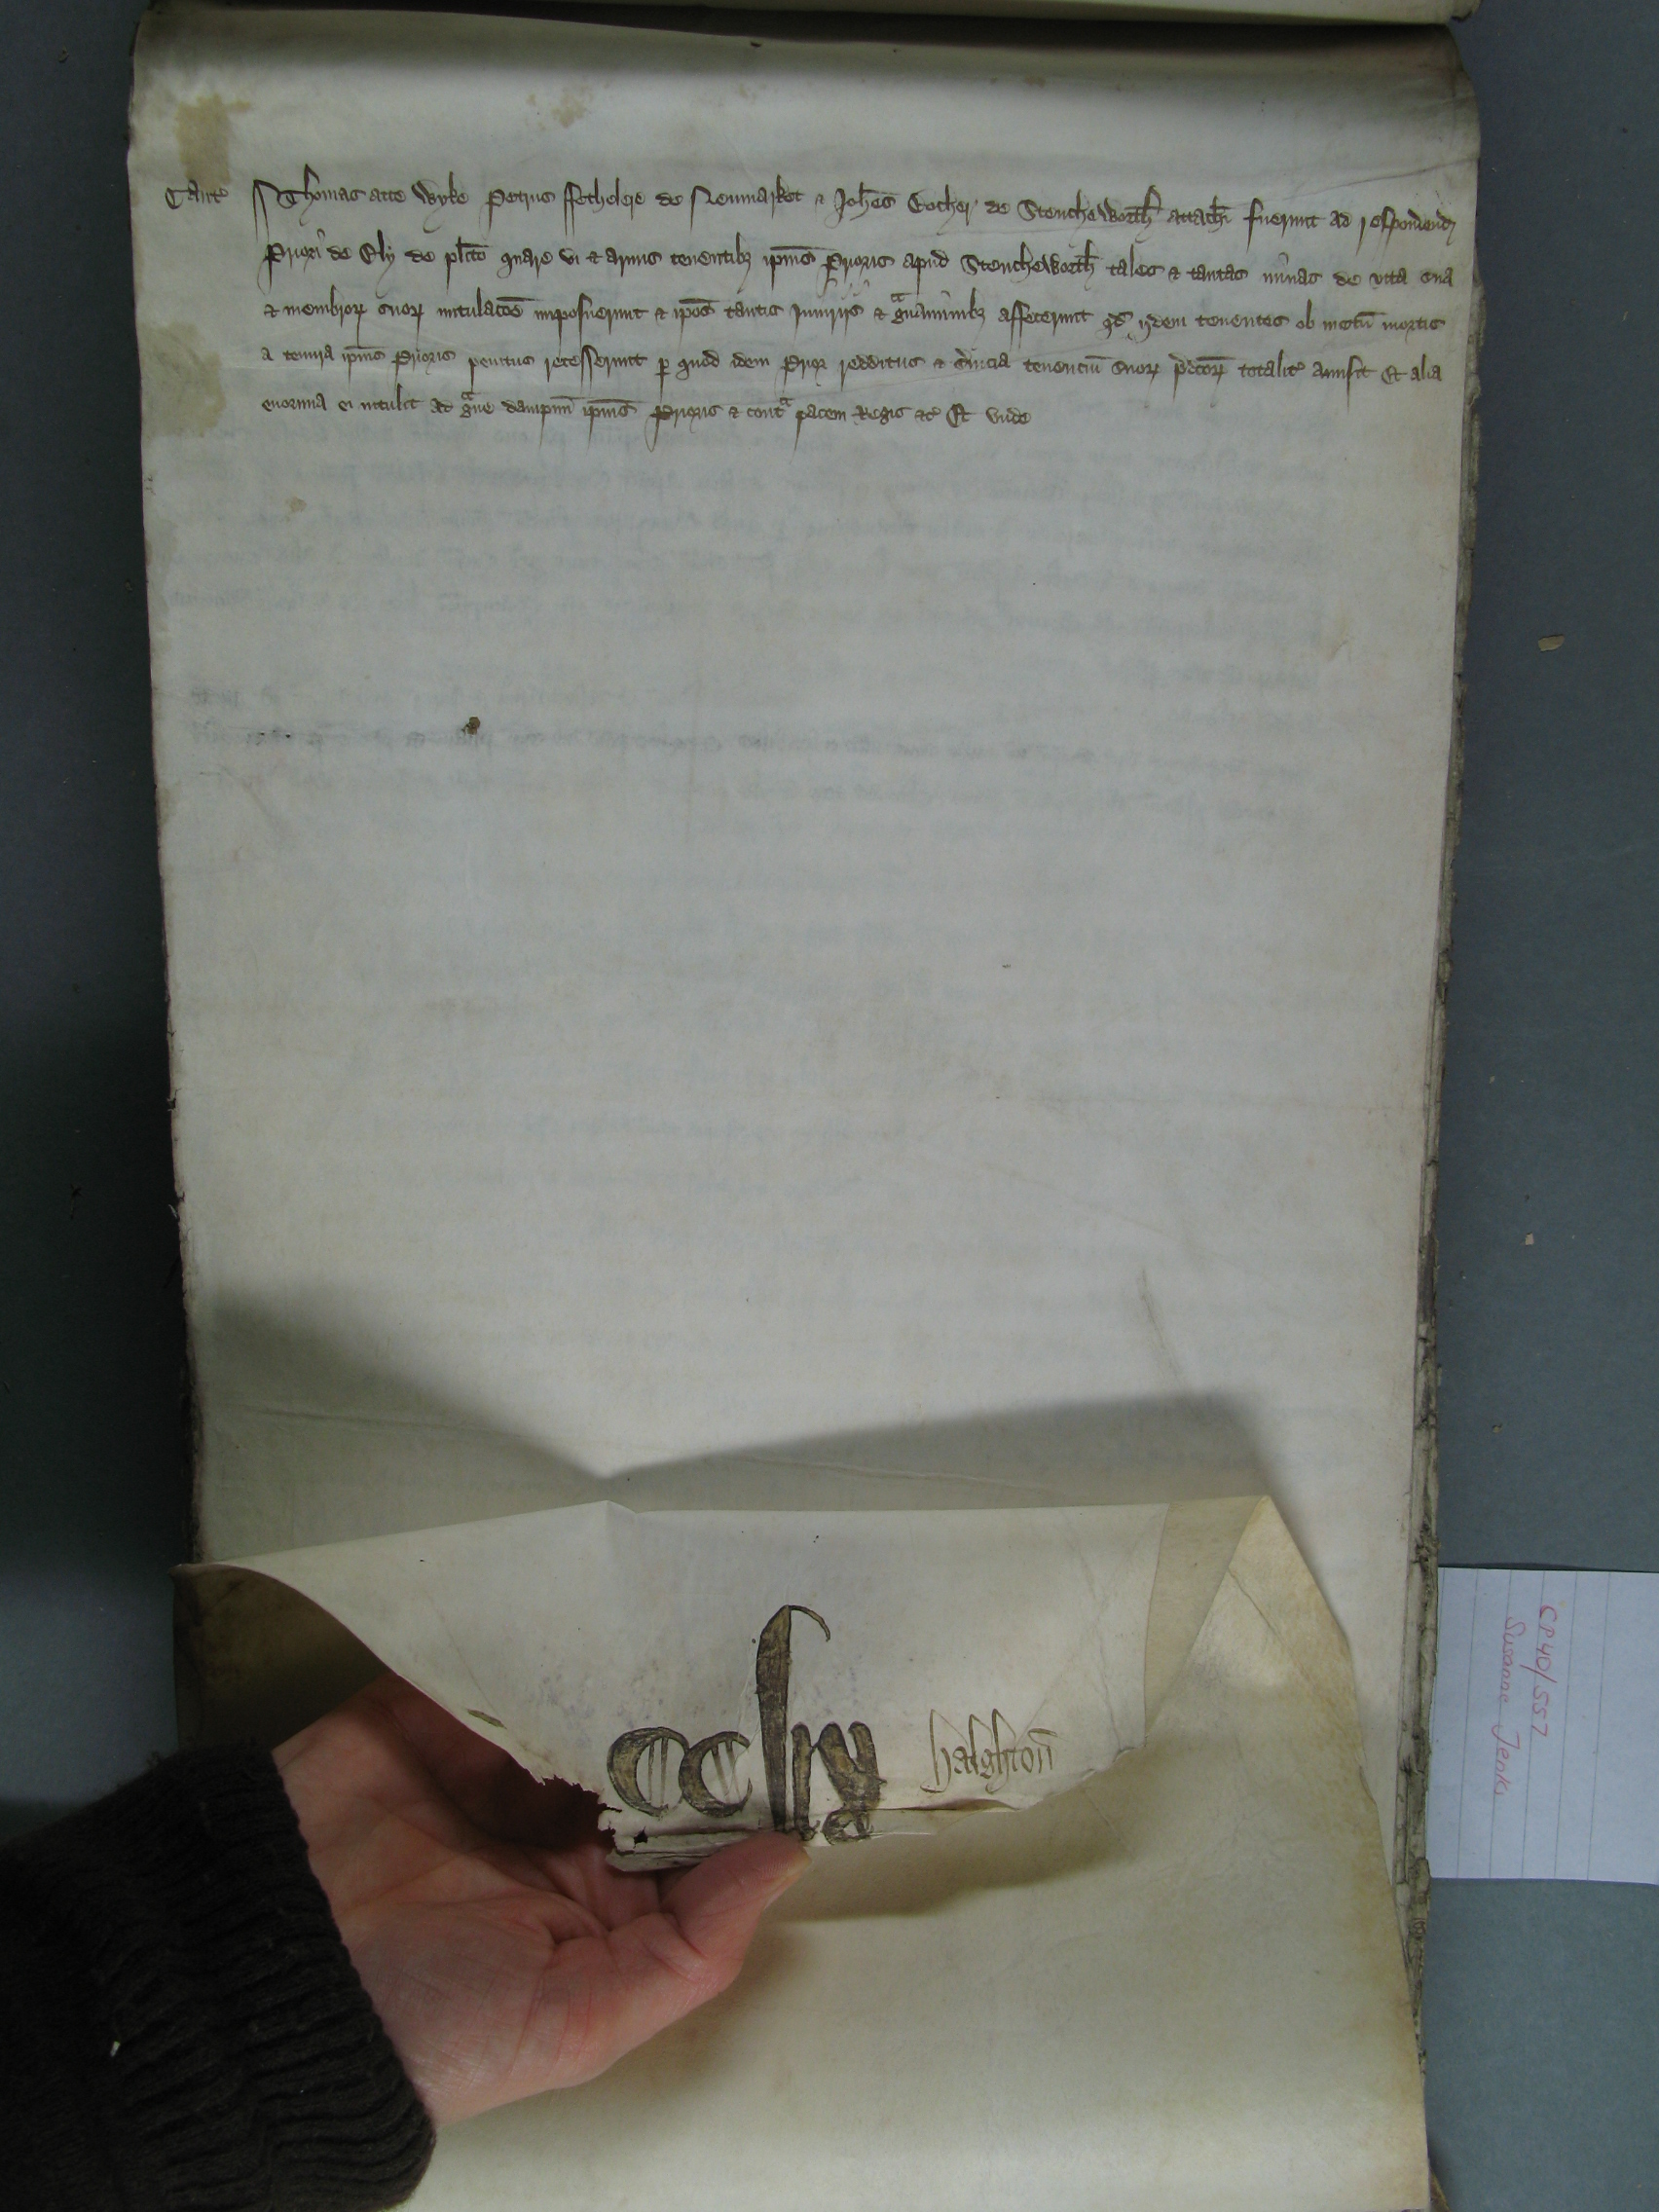 Cant' Thomas atte Wyke Petrus ffethelere de Neumarket & Joh'es Cocher' de Stencheworth' attach' fuerunt ad respondend'
Priori de Ely de pl'ito quare vi & armis tenentib3 ip'ius Prioris apud Stencheworth' tales & tantas minas de vita sua
& membror' suor' mutulac'o'e imposuerunt & ip'os tantis iniuriis & g'uaminib3 affecerunt q'd ijdem tenentes ob metu' mortis
a tenura ip'ius Prioris penitus recesserunt p' quod idem Prior redditus & s'uicia tenenciu' suor' p'dcor' totalit' amisit Et alia
enormia ei intulit ad g'ue dampnu' ip'ius Prioris & cont'a pacem Regis &c' Et unde
halghton'
CP40/557
Susanne Jenks